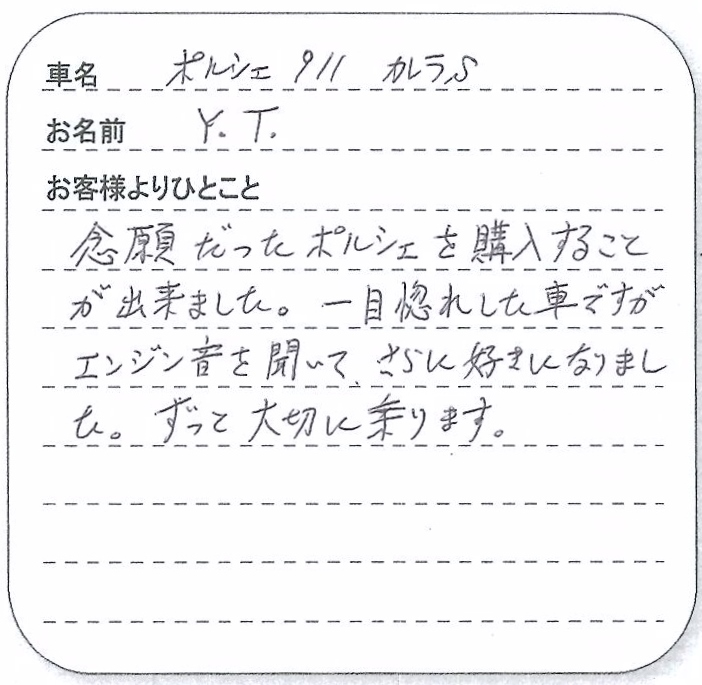 車名 ポルシェ 911 カレラS
お名前 Y. T.
お客様よりひとこと
念願だったポルシェを購入すること
が出来ました。一目惚れした車ですが
エンジン音を聞いて、さらに好きになりまし
た。ずっと大切に乗ります。